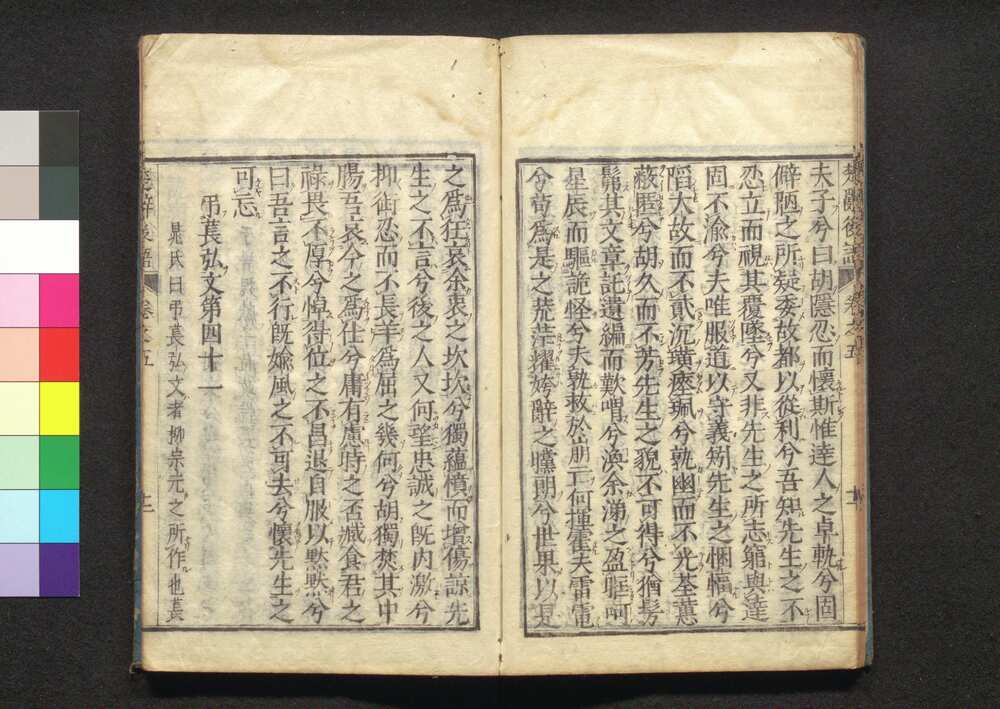 夫子兮曰胡隱忍而懷斯惟達人之卓軌兮固
僻陋之所疑委故都以從利兮吾知先生之不
忍立而視其覆墜兮又非先生之所志窮與達
固不渝兮夫唯服道以守義矧先生之悃愊兮
陷大故而不貳沉璜瘞珮兮孰幽而不光荃蕙
蔽匿兮胡久而不芳先生之貌不可得兮猶髣
髴其文章託遺編而歎喟兮渙余涕之盈眶呵
星辰而驅詭怪兮夫孰救於崩亡何揮霍夫雷電
兮苟爲是之荒茫耀姱辭之矘朗兮世果以是
之爲狂哀余衷之坎坎兮獨蘊憤而增傷諒先
生之不言兮後之人又何望忠誠之既内激兮
抑銜忍而不長羊爲屈之幾何兮胡獨焚其中
腸吾哀今之爲仕兮庸有慮時之否臧食君之
祿畏不厚兮悼得位之不昌退自服以黙黙兮
曰吾言之不行既媮風之不可去兮懷先生之
可忘
弔萇弘文第四十一
晁氏曰弔萇弘文者柳宗元之所作也萇
楚辭後語 卷之五